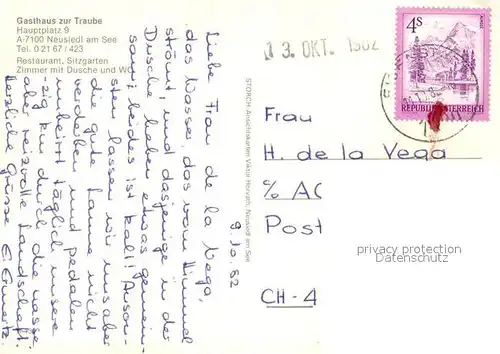 Gasthaus zur Traube
Hauptplatz 9
A-7100 Neusiedl am See
Tel. 0 21 67 / 423
Restaurant, Sitzgarten
Zimmer mit Dusche und WC
9.10.82
Liebe Frau de la Vega,
das Wasser, das vom Himmel
strömt, und dasjenige in der
Dusche haben etwas gemein-
sam: beides ist kalt! Anson-
sten lassen wir uns aber
die gute Laune nicht
verderben und pedalen
unbeirrt täglich unsere
zig km durch die nasse,
aber reizvolle Landschaft.
Herzliche Grüsse
STORCH Ansichtskarten Viktor Horvath, Neusiedl am See
13. OKT. 1982
4 S
REPUBLIK ÖSTERREICH
Frau
H. de la Vega
% AC
Post
CH-4
privacy protection
Datenschutz